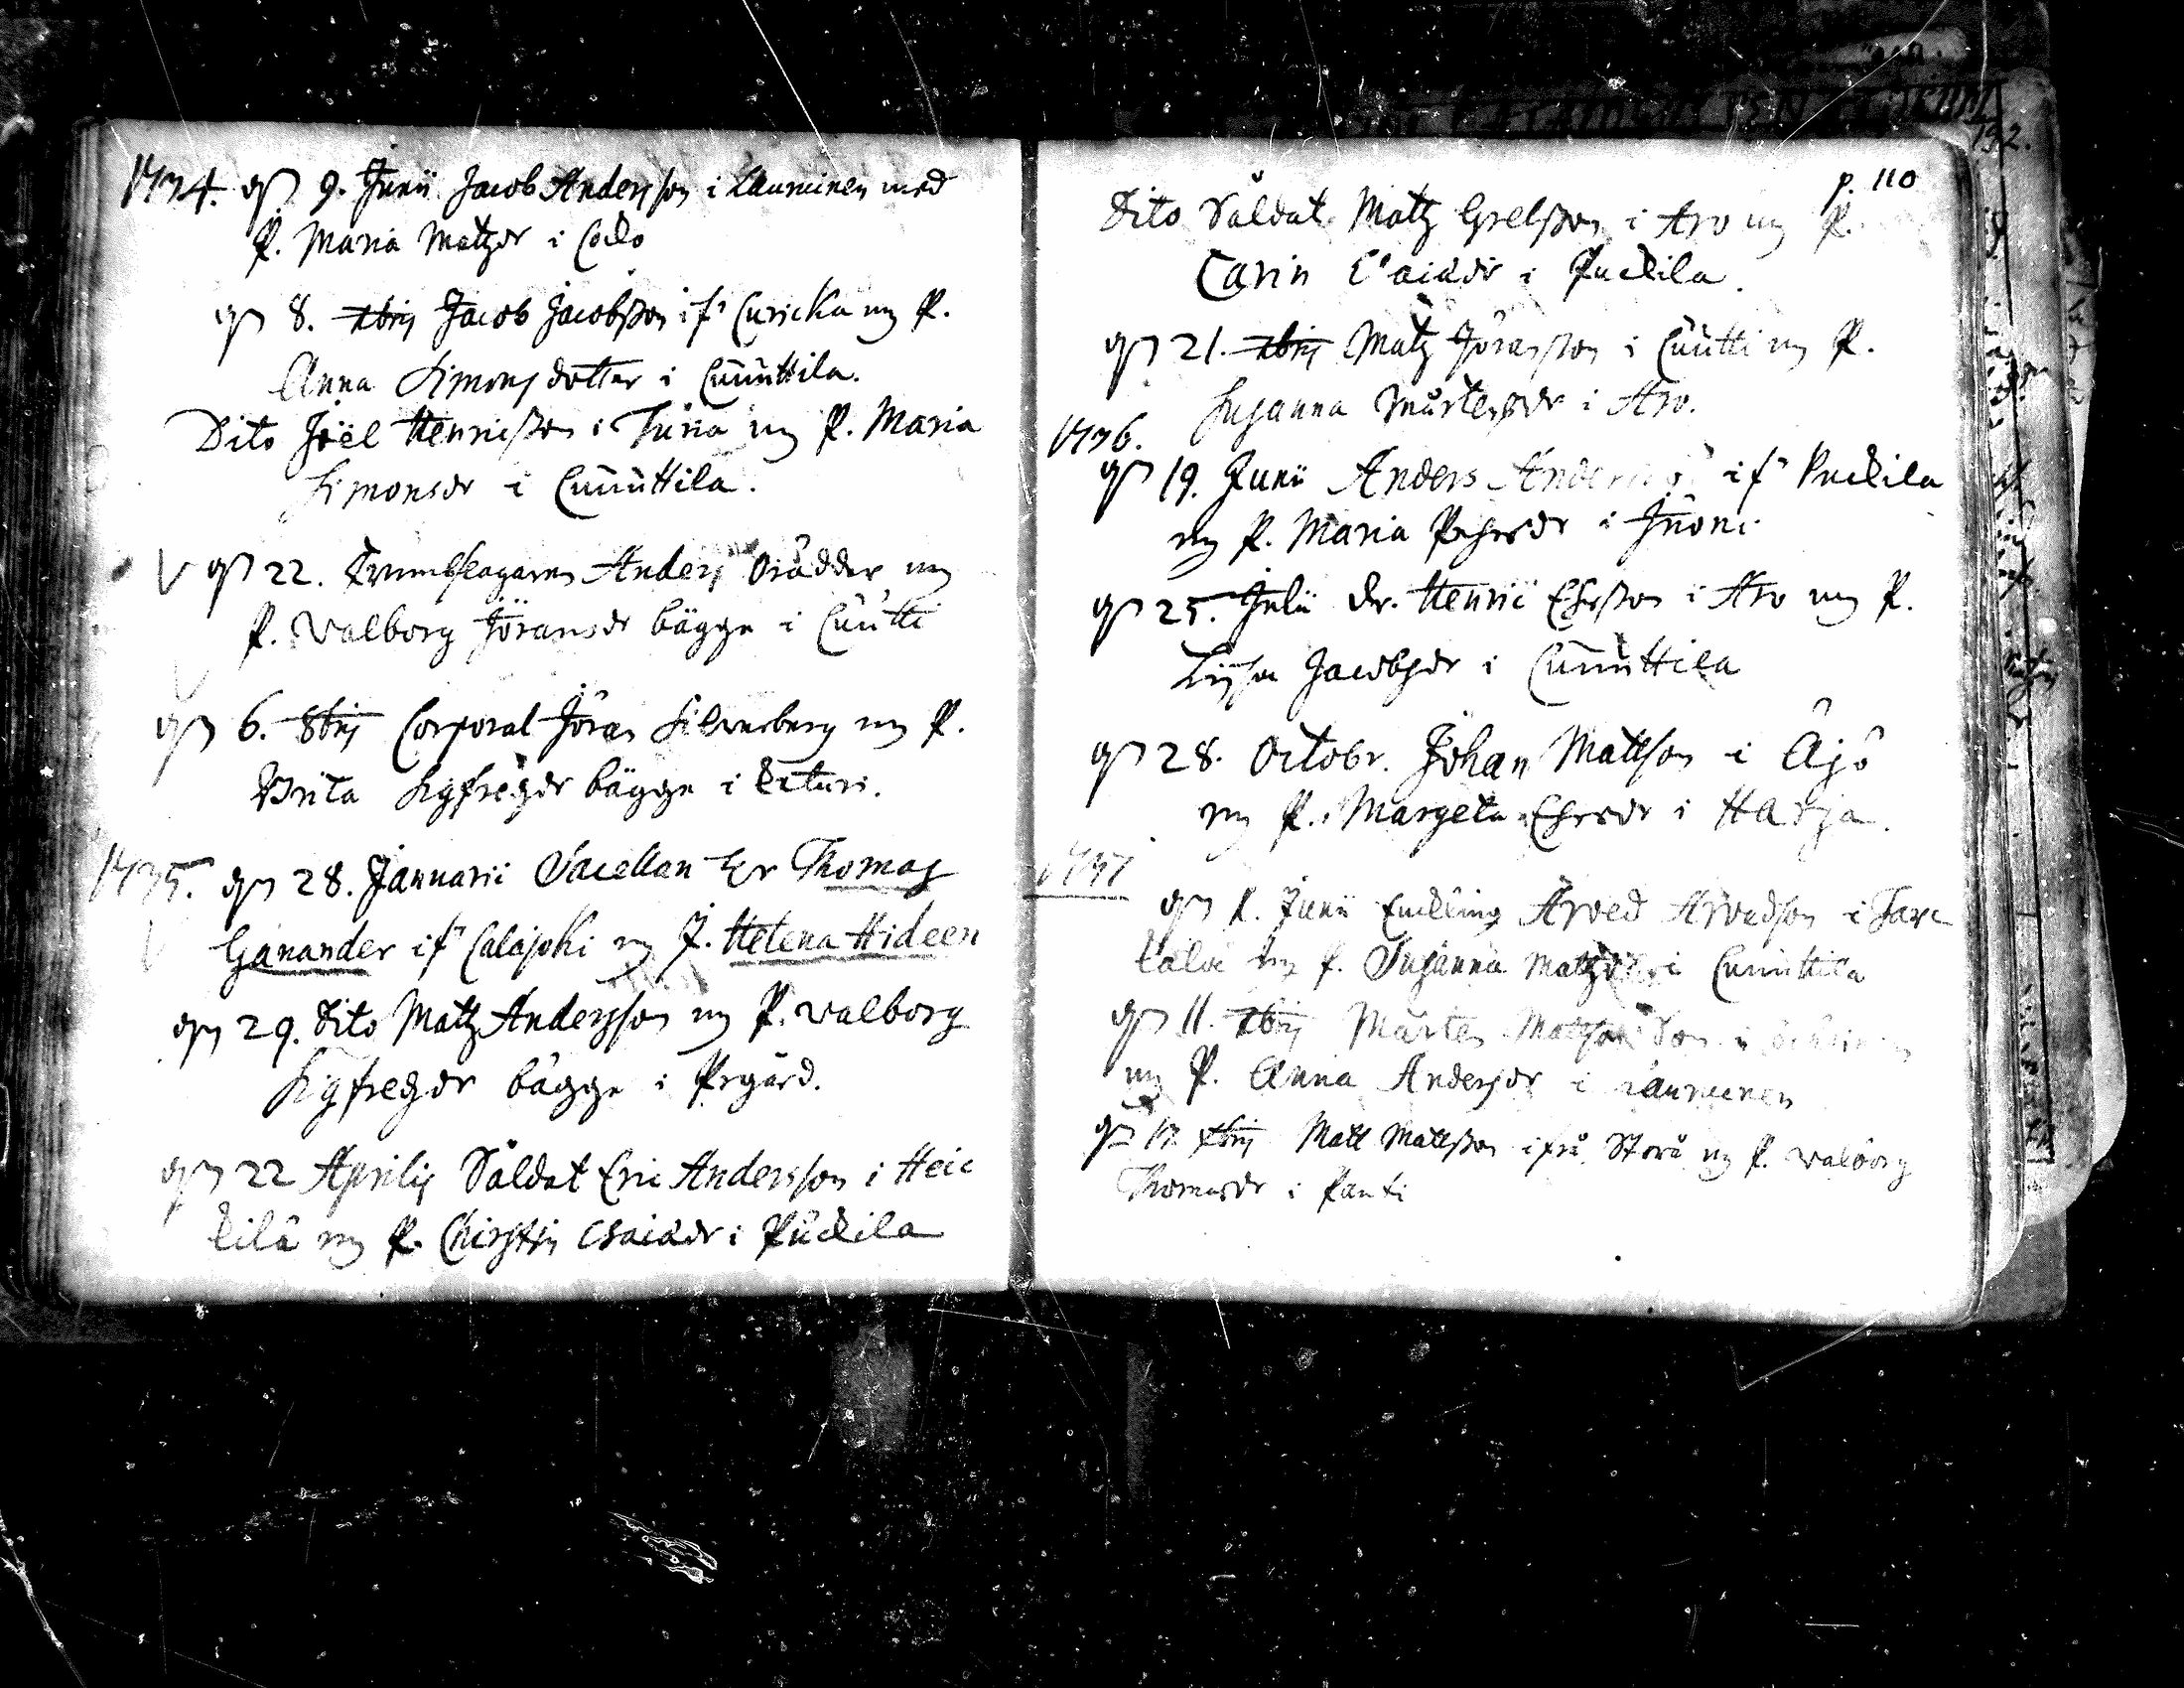 1734. 9. Junii Jacob Andersson i Lauroinen med
P. Maria Matzdr i Coclo
8. xbrij Jacob Jacobsson if? Curicka mz P.
Anna Simonsdotter i Cuuuttila.
Dito Joël Henricsson i Turia mz P. Maria
Simonsdr i Cuuuttila.
22. Trumslagaren Anders Orädder mz
P. Walborg Jöransdr bägge i Cuutti
6. 8brij Corporal Jöran Silverberg mz P.
Brita Sigfredzdr bägge i
1735. 28. Januarii Sacellan Hr Thomas
Ganander if? Calajoki mz J. Helena Hideen
29. Dito Matz Andersson mz P. Walborg
Sigfredzdr bägge i Prgård.
22 Aprilis Såldat Eric Andersson i Heic
kilä mz P. Chirstin Esaiædr i Puckila
p. 110
Dito Såldat Matz Grelsson i Aro mz P.
Carin Esaiædr i Puckila.
21. xbrij Matz Jöransson i Cuutti mz P.
Susanna Mårtensdr i Aro.
1736.
19. Junii Anders if? Puckila
mz P. Maria Pehrsdr i Juoni
25. Julii Dr. Henric Ehrsson i Aro mz P.
Lijsa Jacobsdr i Cuuuttila
28. Octobr. Johan Mattson i Äjö
mz P. Margeta Ehrsdr i Harja.
1737
Junii Enckling Arved Arvedson i Tave
mz P. Susanna Matzdr i Cuuuttila
11. xbrij Mårten
mz P. Anna Andersdr i Lauroinen
xbrij Matt Mattsson ifrå Storå mz P. Walborg
Thomasdr i Panti
192.